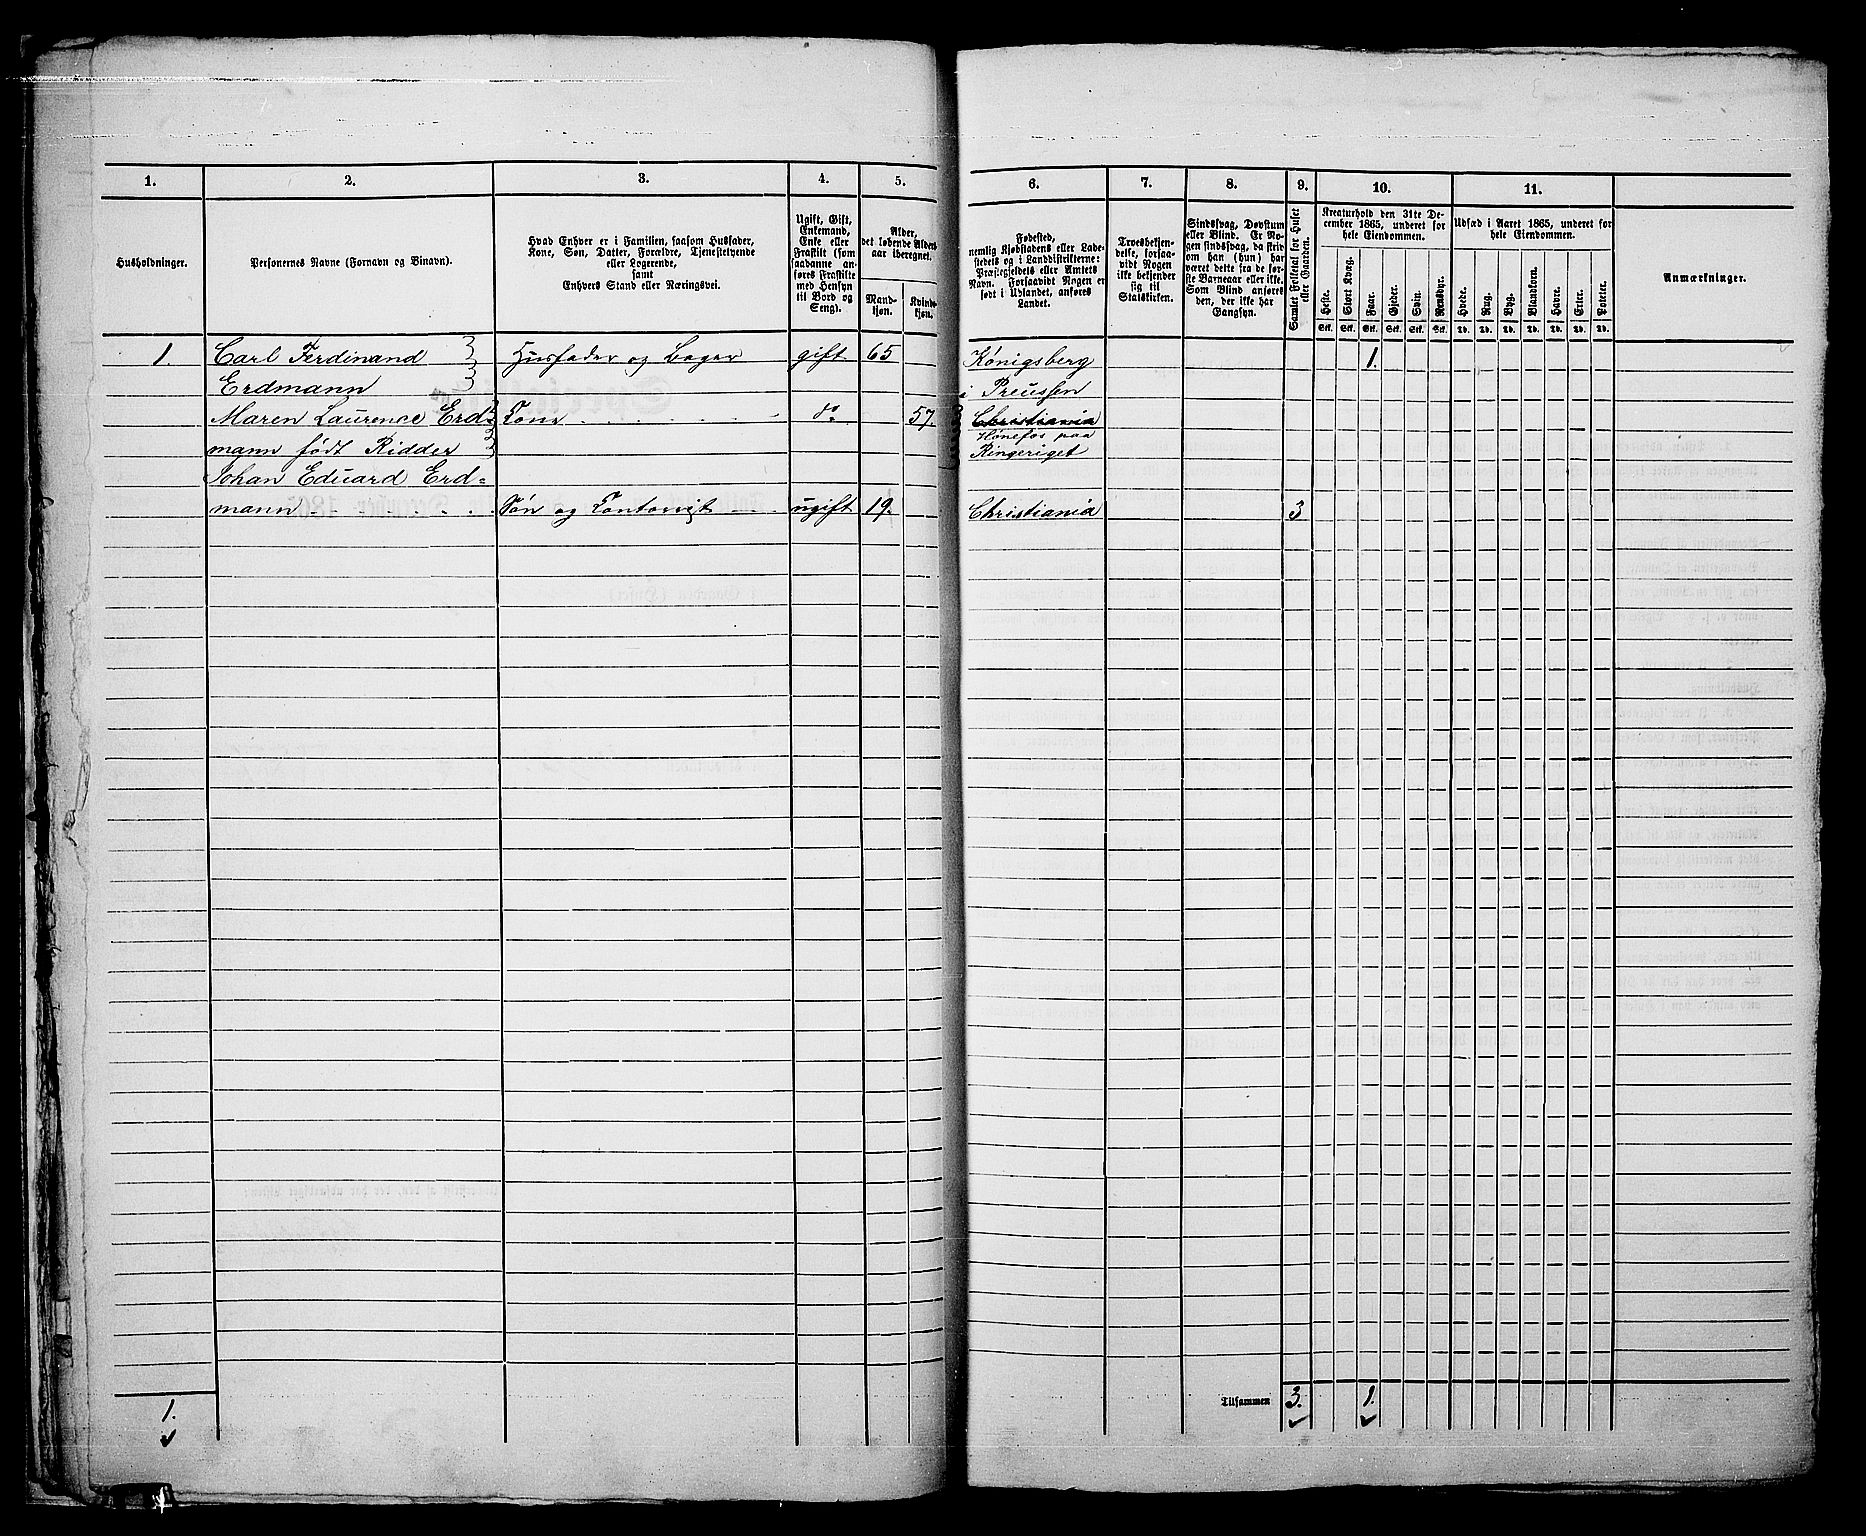 1.
2.
3.
4.
5.
Husholdninger.
Personernes Navne (Fornavn og Binavn).
Hvad Enhver er i Familien, saasom Husfader,
Kone, Søn, Datter, Forældre, Tjenestetyende
eller Logerende,
samt
Enhvers Stand eller Næringsvei.
Ugift, Gift,
Enkemand,
Enke eller
Fraskilt (som
saadanne an-
føres Fraskilte
med Hensyn
til Bord og
Seng).
Alder,
det løbende Alders-
aar iberegnet.
Mand-
kjøn.
Kvinde-
kjøn.
1. Carl Ferdinand Husfader og Bager gift 65
Erdmann
Maren Laurence Erd= Kone do 57.
mann født Ridder
Johan Eduard Erd=
mann Søn og Contorist ugift 19.
1.
6.
7.
8.
9.
10.
11.
Fødested,
nemlig Kjøbstadens eller Lade-
stedets og i Landdistrikterne:
Præstegjeldets eller Amtets
Navn. Forsaavidt Nogen er
født i Udlandet, anføres
Landet.
Troesbekjen-
delse, forsaa-
vidt Nogen
ikke bekjender
sig til
Statskirken.
Sindssvag, Døvstum
eller Blind. Er No-
gen sindssvag, da skriv
om han (hun) har
været dette fra de før-
ste Barneaar eller ikke.
Som Blind anføres
den, der ikke har
Gangsyn.
Samlet Folketal for Huset
eller Gaarden.
Kreaturhold den 31te De-
cember 1865, underet for
hele Eiendommen.
Heste.
Stort Kvæg.
Faar.
Gjeder.
Svin.
Rensdyr.
Stk. Stk. Stk. Stk. Stk. Stk.
Udsæd i Aaret 1865, underet for
hele Eiendommen.
Hvede.
Rug.
Byg.
Blandkorn.
Havre.
Erter.
Poteter.
Td. Td. Td. Td. Td. Td. Td.
Anmærkninger.
Königsberg 1.
i Preussen
Christiania
Hønefos paa
Ringeriget
Christiania 3
Tilsammen 3. 1.